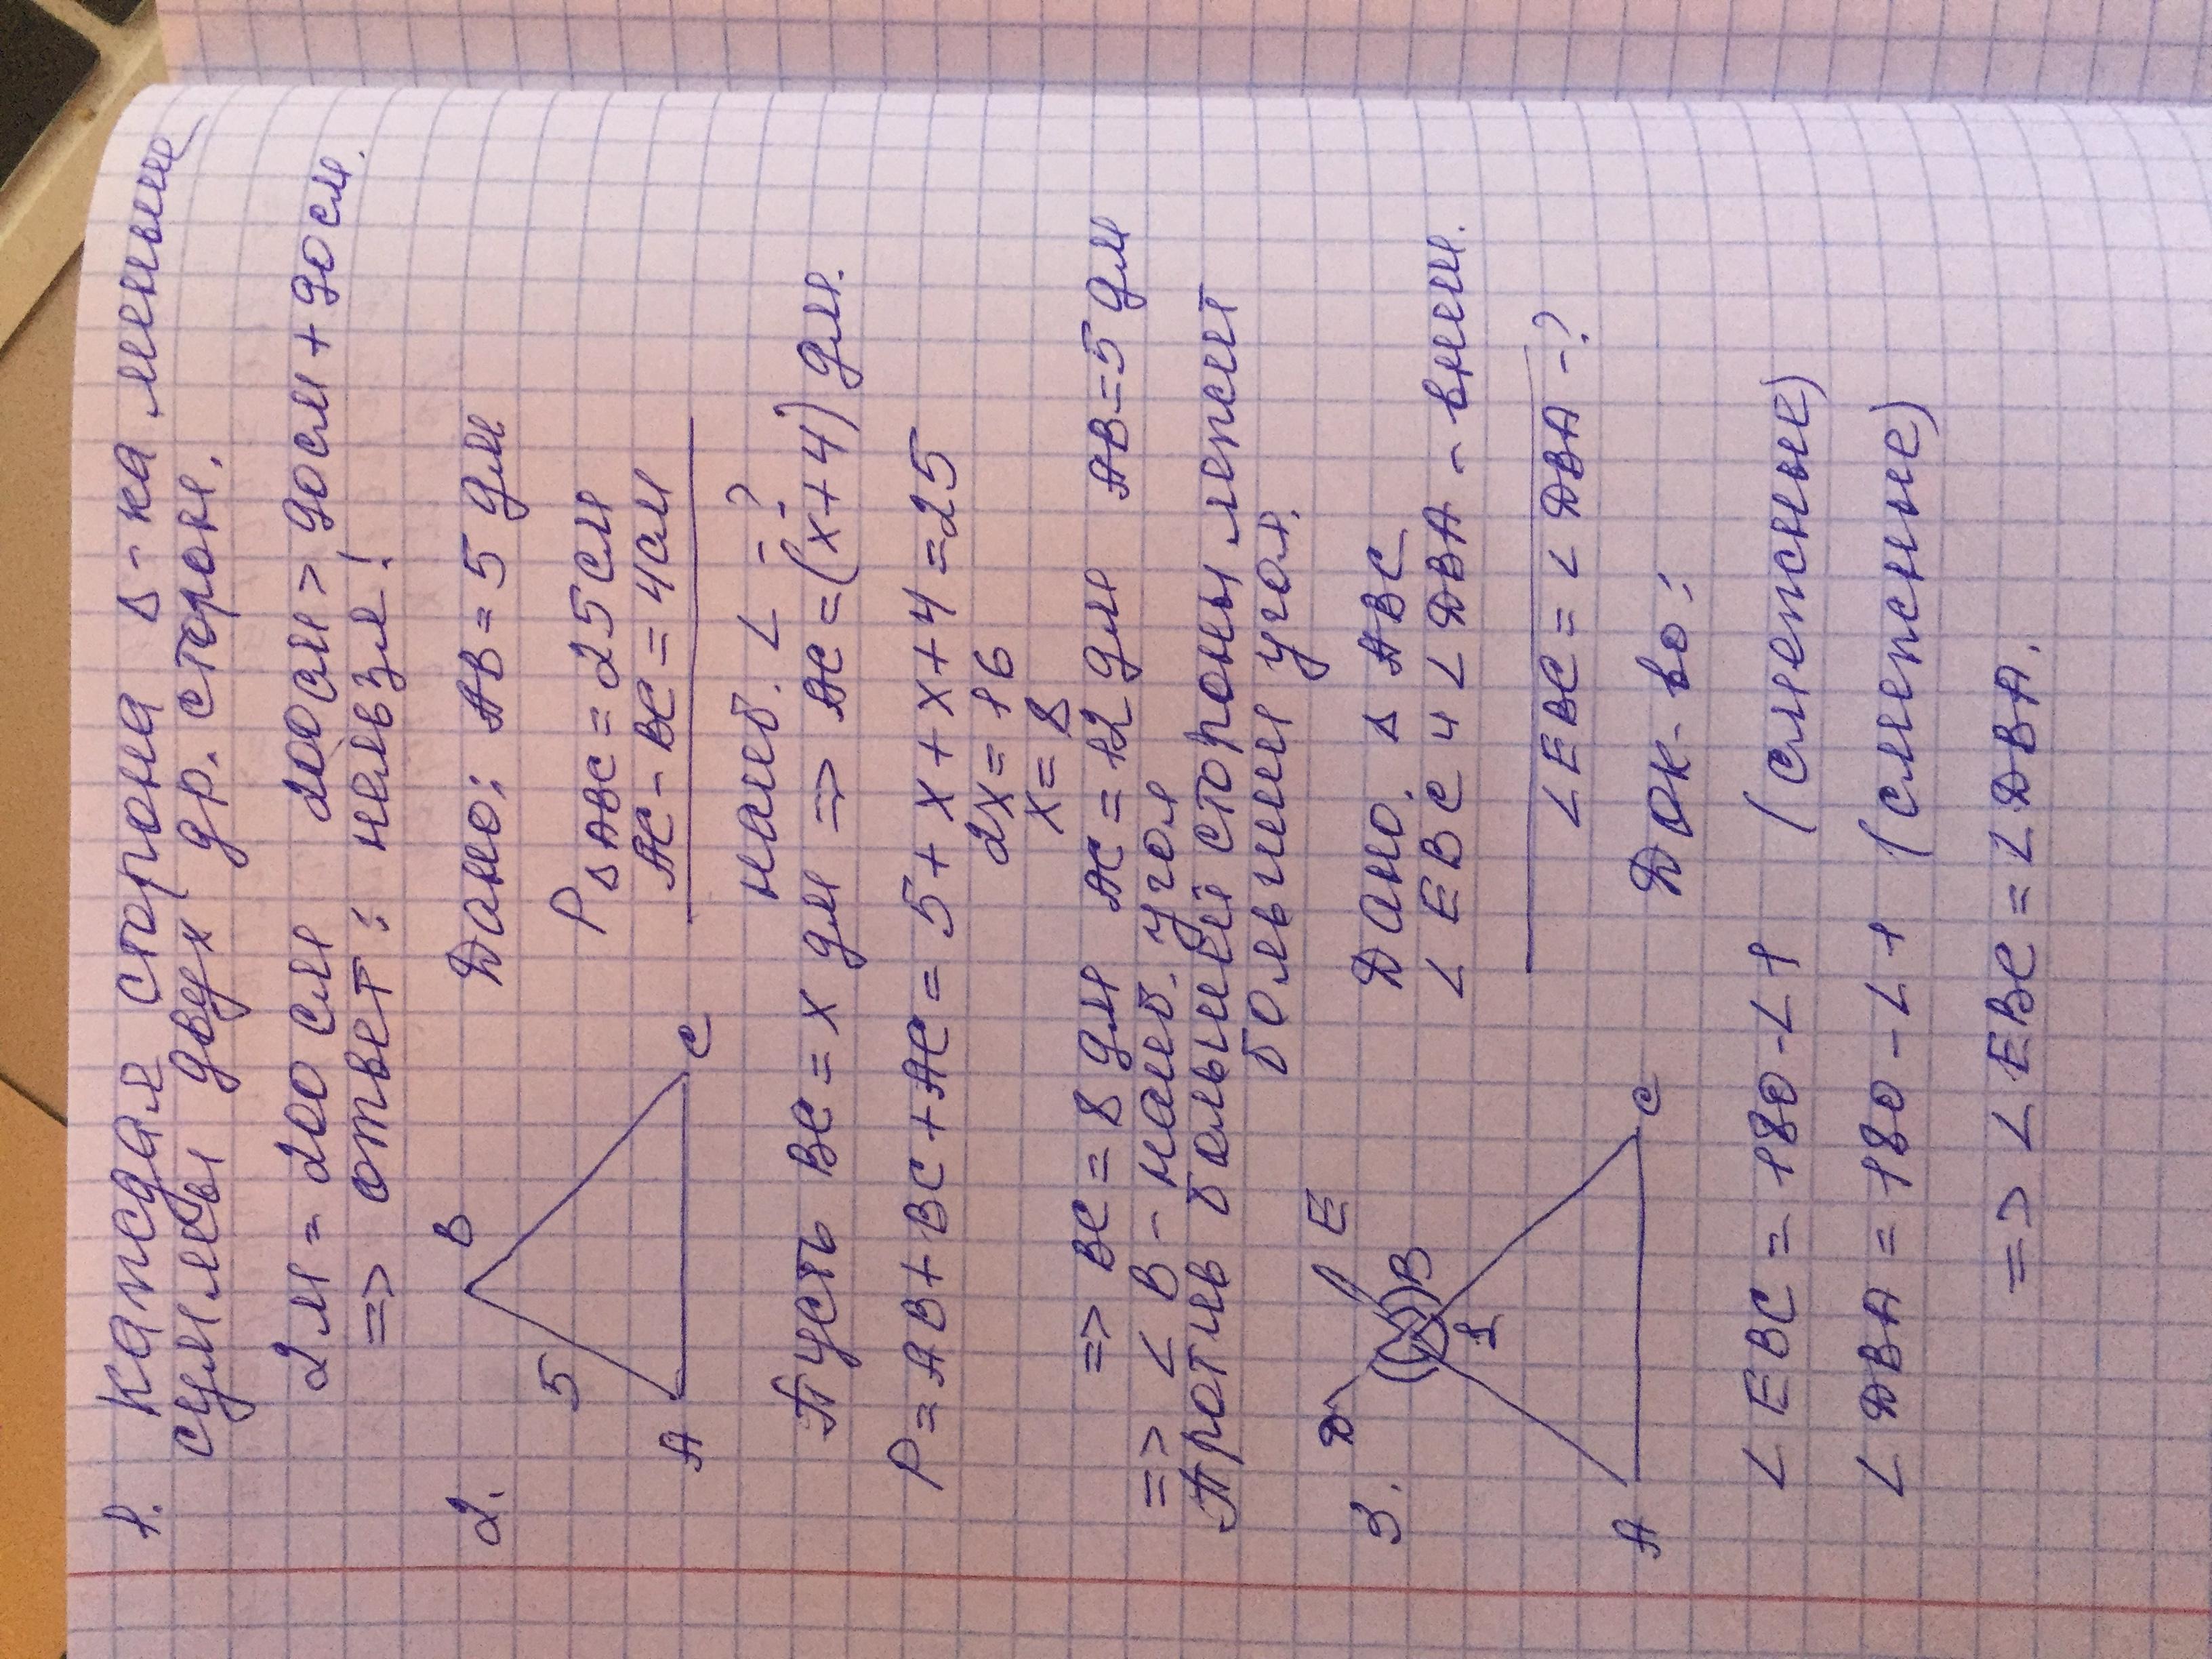 1. Каждая сторона Δ-ка меньше
суммы двух др. сторон.
2м = 200 см 200см > 90см + 90см.
=> ответ: нельзя!
2. Дано: AB = 5 дм
P Δ ABC = 25 см
AC - BC = 4 см
наиб. ∠ - ?
B
5
A
C
Пусть BC = x дм => AC = (x+4) дм.
P = AB + BC + AC = 5 + x + x + 4 = 25
2x = 16
x = 8
=> BC = 8 дм AC = 12 дм AB = 5 дм
=> ∠ B - наиб. угол
Против большей стороны лежит
больший угол.
3. Дано: Δ ABC
∠ EBC и ∠ DBA - внеш.
∠ EBC = ∠ DBA - ?
D
E
B
1
A
C
Док-во:
∠ EBC = 180 - ∠ 1 (смежные)
∠ DBA = 180 - ∠ 1 (смежные)
=> ∠ EBC = ∠ DBA.